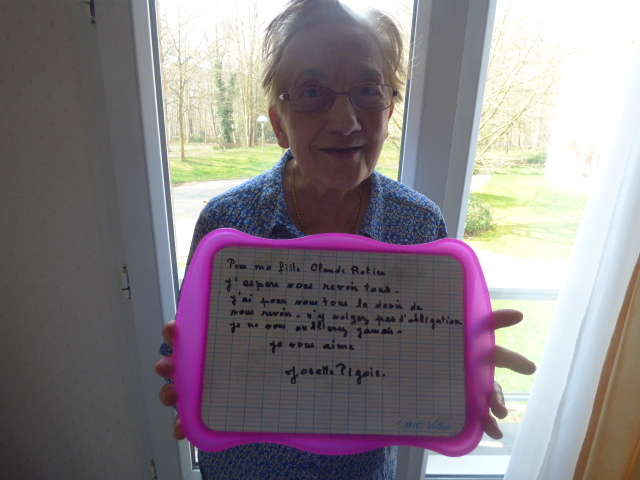 Pour ma fille Claude Rotier
j'espere vous revoir tous.
j'ai pour vous tous le desir de
vous revoir. n'y voyez pas d'obligation
je ne vous oublierez jamais.
je vous aime
Josette Pigois.
BIC Velleda